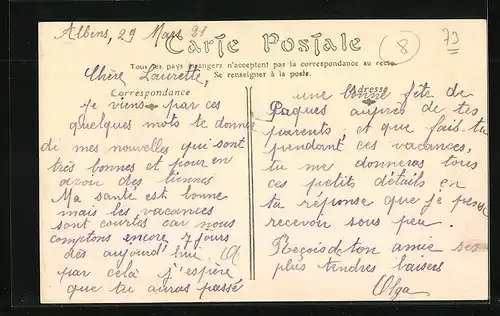 Albens, 29 Mars 31
8
73
Carte Postale
Tous les pays étrangers n'acceptent pas la correspondance au recto
Se renseigner à la poste.
Chère Laurette,
Correspondance
Adresse
je viens par ces
quelques mots te donner
de mes nouvelles qui sont
très bonnes et pour en
avoir des tiennes
Ma santé est bonne
mais les vacances
sont courtes car nous
comptons encore 7 jours
dès aujourd'hui.
par cela j'espère
que tu auras passé
une bonne fête de
Pâques auprès de tes
parents, et que fais-tu
pendant ces vacances,
tu me donneras tous
ces petits détails en
ta réponse que je pense
recevoir sous peu.
Reçois de ton amie ses
plus tendres baisers
Olga